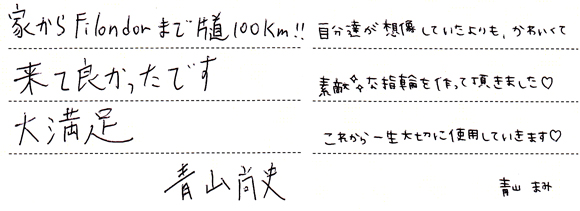 家からFilondorまで片道100Km!!
来て良かったです
大満足
青山尚史
自分達が想像していたよりも、かわいくて
素敵な指輪を作って頂きました♡
これから一生大切に使用していきます♡
青山 まみ